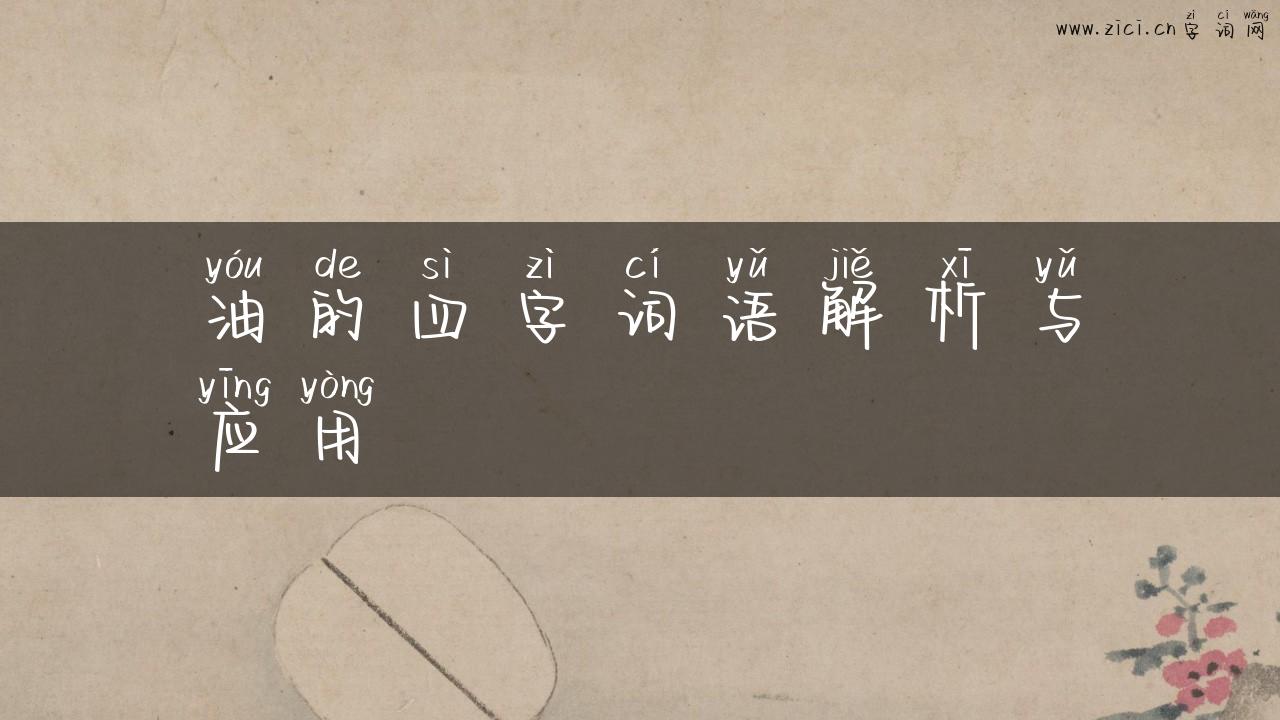 zì cí wǎng
www.zici.cn字词网
yóu de sì zì cí yǔ jiě xī yǔ
油的四字词语解析与
yīng yòng
应用